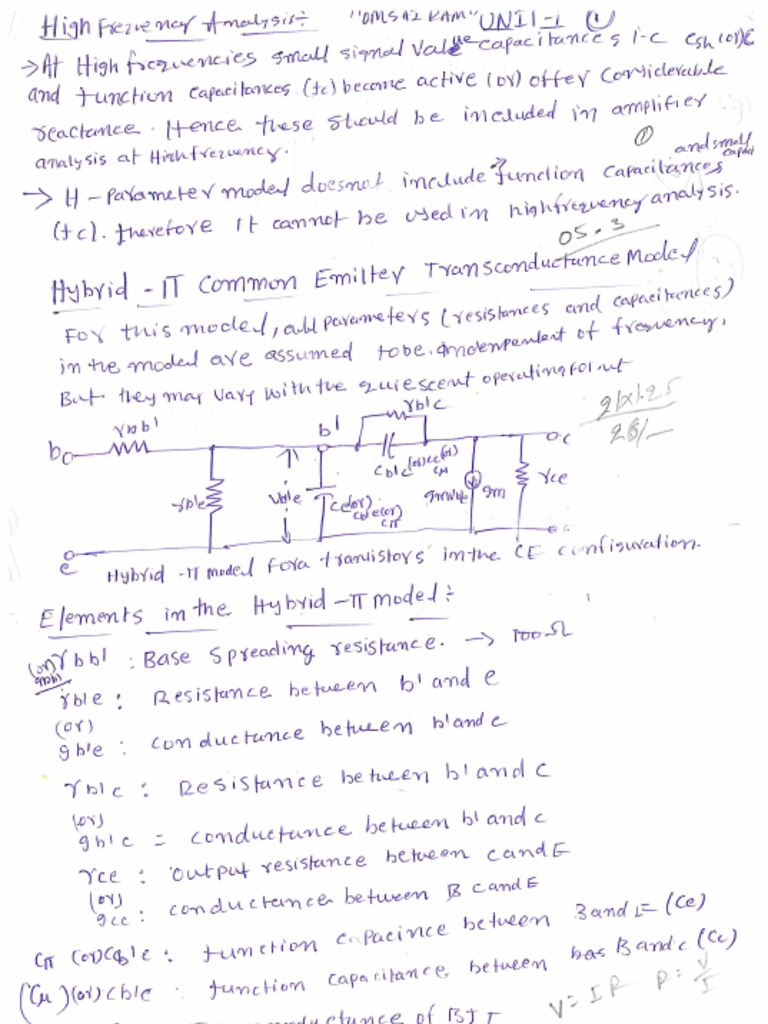 High Frezuency Analysis:- "OMSAI RAM" UNIT-1 ①
→ At High frezuencies small signal value capacitances i-c Csh(or)CE
and Junction Capacitances (Jc) become active (or) offer Considerable
reactance. Hence these should be included in amplifier
analysis at High frezuency.
① and small
→ H-Parameter model doesnot include Junction Capacitances
(Jc). therefore It cannot be used in high frezuency analysis.
05.3
Hybrid -π Common Emitter Transconductance Model
For this model, all parameters (resistances and capacitances)
in the model are assumed to be. independent of frezuency,
But they may vary with the quiescent operating point
rb'c
rbb' b'
bo oc
Cb'c(or)Cc(or)
Cμ
rb'e Vb'e Ce(or) gmVb'e gm rce
Cb'e(or)
Cπ
e
Hybrid -π model for a transistors in the CE configuration.
Elements in the Hybrid -π model :-
(or) rbb' : Base Spreading resistance. → 100Ω
gbb'
rb'e : Resistance between b' and e
(or)
gb'e : conductance between b' and e
rb'c : Resistance between b' and c
(or)
gb'c = conductance between b' and c
rce : output resistance between c and E
(or)
gce : conductance between B C and E
Cπ (or) Cb'e : Junction capacince between B and E = (Ce)
(Cμ) (or) Cb'c : Junction capacitance between bas B and c (Cc)
V = IR R = V/I
ductance of BJT